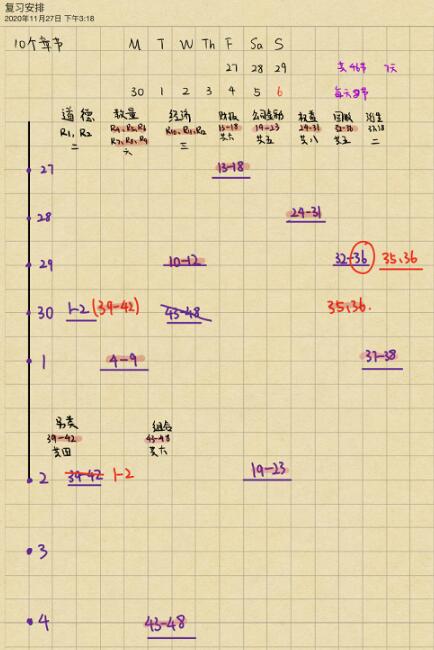 复习安排
2020年11月27日 下午3:18
10个章节 M T W Th F Sa S
27 28 29 共46节 7天
30 1 2 3 4 5 6 每天8节
道德 数量 经济 财报 公司金融 权益 固收 衍生
R1, R2 R4, R5, R6 R10, R11, R12 13-18 19-23 24-31 32-36 37, 38
二 R7, R8, R9 三 共六 共五 共八 共五 二
六
27 13-18
28 24-31
29 10-12 32-36 35, 36
30 1-2 (39-42) 43-48 35, 36.
1 4-9 37-38
另类 组合
39-42 43-48
共四 共六
2 39-42 1-2 19-23
3
4 43-48